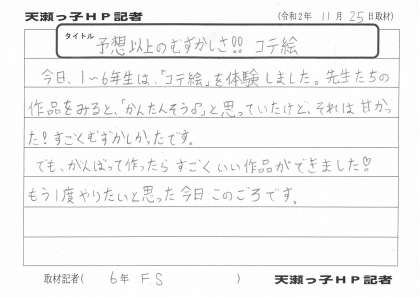 天瀬っ子HP記者 (令和2年 11月 25日取材)
タイトル
予想以上のむずかしさ!! コテ絵
今日、1〜6年生は、「コテ絵」を体験しました。先生たちの
作品をみると、「かんたんそう♪」と思っていたけど、それは甘かっ
た!すごくむずかしかったです。
でも、がんばって作ったらすごくいい作品ができました♡
もう1度やりたいと思った今日このごろです。
取材記者( 6年 FS ) 天瀬っ子HP記者